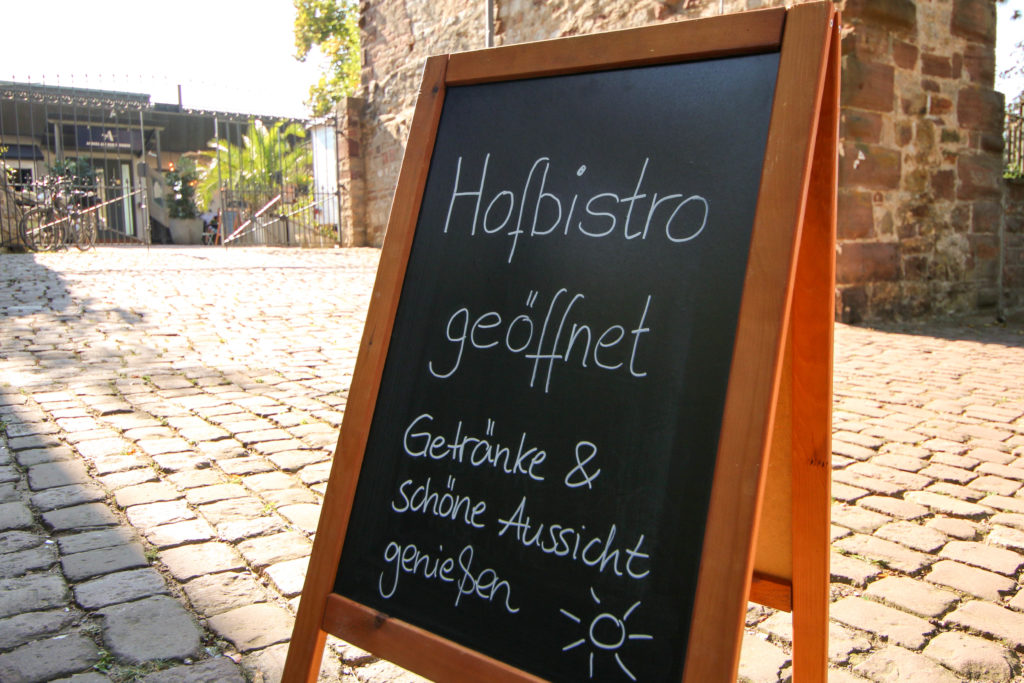 Hofbistro
geöffnet
Getränke &
schöne Aussicht
genießen